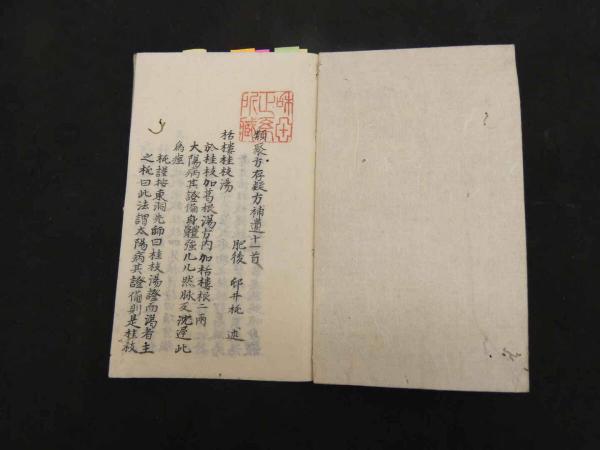 類聚方存疑方補遺十一首
肥後 邨井杶 述
栝樓桂枝湯
於桂枝加葛根湯方内加栝樓根二兩
太陽病其證備身體強几几然脉反沈遲此
為痓
杶謹按東洞先師曰桂枝湯證而渴者主
之杶曰此法謂太陽病其證備則是桂枝
所藏